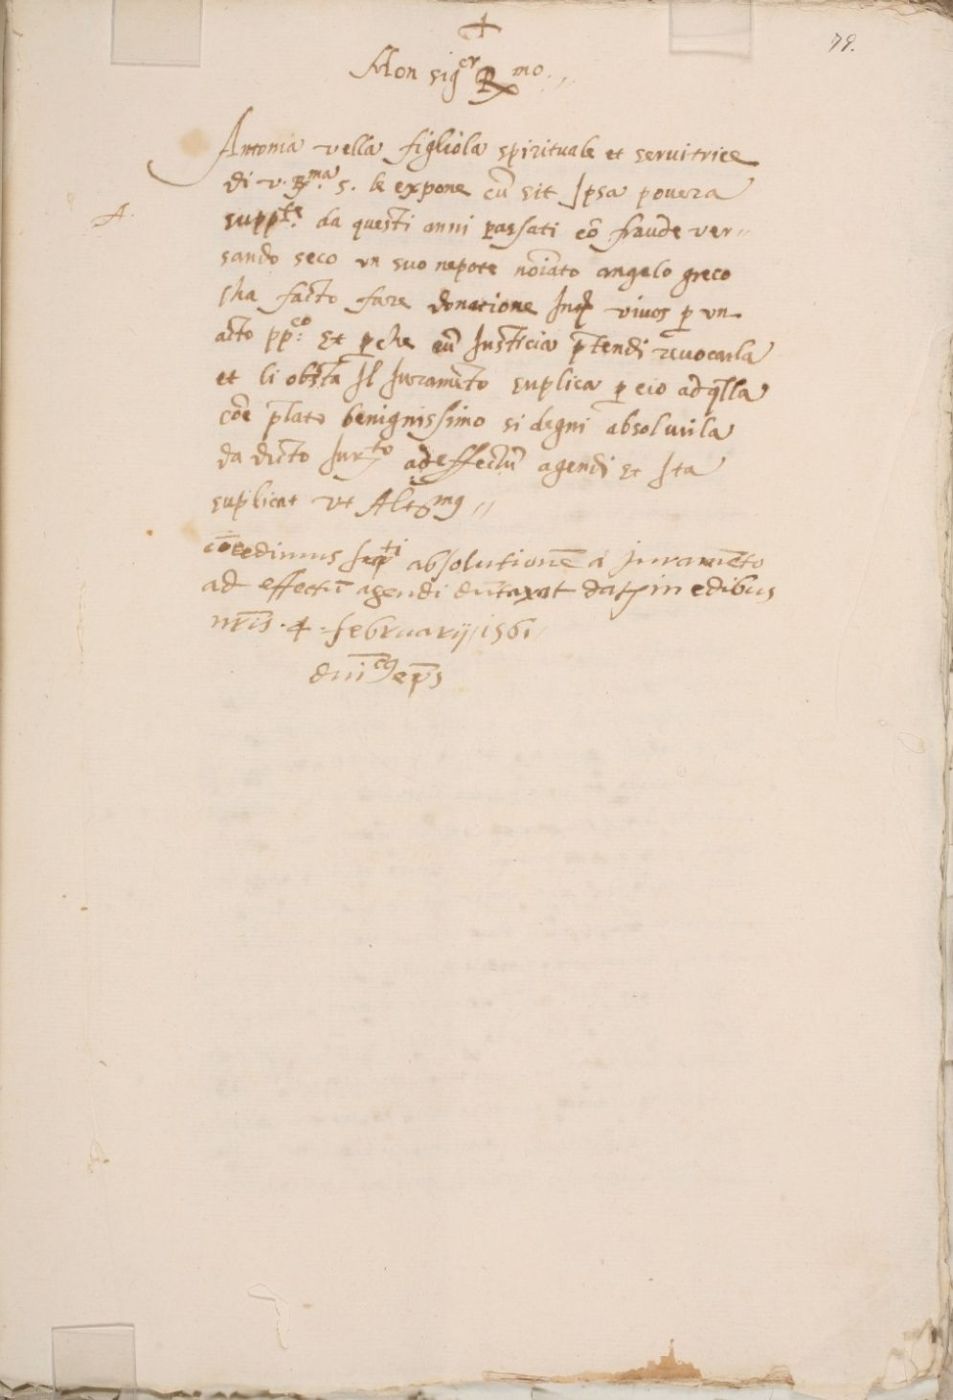 +
79.
Mon sig.er R.mo
Antonia vella figliola spirituale et servitrice
di v. R.ma s. le expone cũ sit Ipsa povera
A.
supp.te da questi anni passati cõ fraude ver=
sando seco un suo nepote noĩato angelo greco
sha facto fare donatione Int̃ vivos p un
acto pp.co Et p che cũ Justicia p̃tendi revocarla
et li obsta Il Juramẽto suplica p cio ad q̃lla
cõe p̃lato benignissimo si degni absolvirla
da dicto Jur.to ad effectũ agendi Et Ita
suplicat ut Alt.mus
cõcedimus absolutionẽ a juramẽto
ad effectũ agendi dũtaxat dat in edibus
nr̃is . 4 . februarij 1561
ep̃s